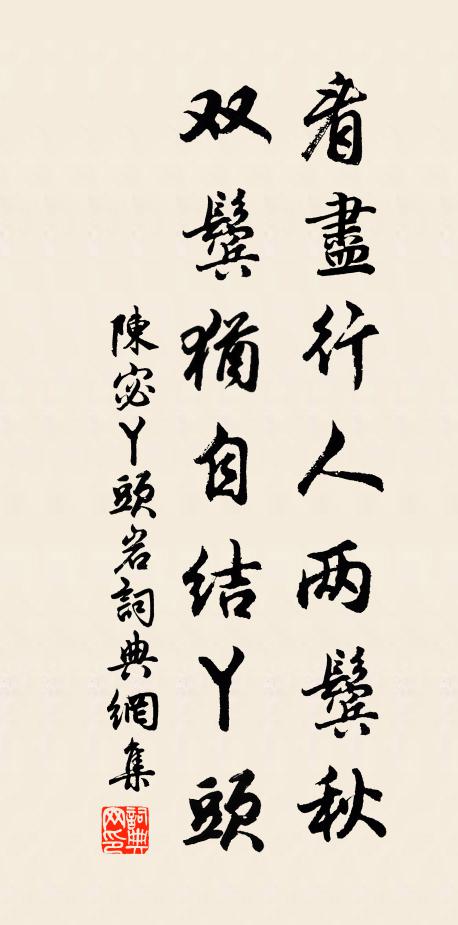 看盡行人两鬓秋
双鬓猶自结丫頭
陳宓丫頭岩詞典網集
詞典网印